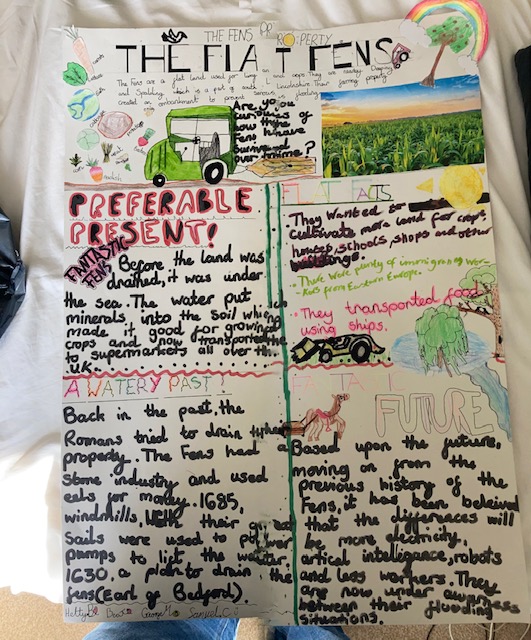 THE FENS PROPERTY
THE FLAT FENS
The Fens are a flat land used for
and Spalding which is a part of south Lincolnshire. Their farming property
created an embankment to prevent serious flooding
Are you
curious of
how the
Fens have
survived
over time?
PREFERABLE
PRESENT!
FANTASTIC
FENS
Before the land was
drained, it was under
the sea. The water put
minerals into the soil which
made it good for growing
crops and now transported
to supermarkets all over the
U.K.
FLAT FACTS
They wanted to
cultivate more land for crops,
houses, schools, shops and other
buildings.
There were plenty of immigrating wor-
-kers from Eastern Europe.
They transported food
using ships.
A WATERY PAST!
Back in the past, the
Romans tried to drain their
property. The Fens had a
stone industry and used
eels for money. 1685,
windmills, with their great
sails were used to power
pumps to lift the water.
1630, a plan to drain the
fens (Earl of Bedford).
FANTASTIC
FUTURE
Based upon the future,
moving on from the
previous history of the
Fens, it has been beleived
that the differences will
be more electricity,
artical intellegance, robots
and less workers. They
are now under awarness
between their flooding
situations.